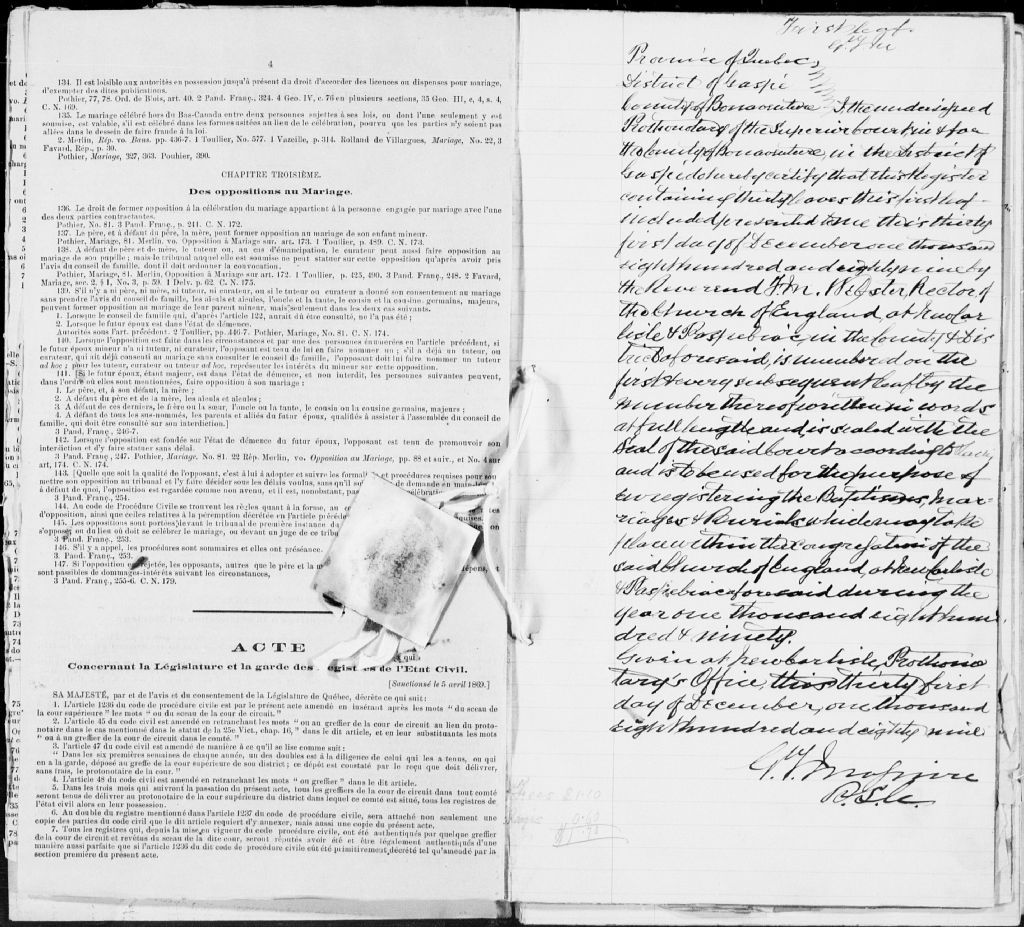 4
134. Il est loisible aux autorités en possession jusqu'à présent du droit d'accorder des licences ou dispenses pour mariage,
d'exempter des dites publications.
Pothier, 77, 78. Ord. de Blois, art. 40. 2 Pand. Franç., 324. 4 Geo. IV, c. 76 en plusieurs sections, 35 Geo. III, c, 4, s. 4,
C. N. 169.
135. Le mariage célébré hors du Bas-Canada entre deux personnes sujettes à ses lois, ou dont l'une seulement y est
soumise, est valable, s'il est célébré dans les formes usitées au lieu de la célébration, pourvu que les parties n'y soient pas
allées dans le dessein de faire fraude à la loi.
2. Merlin, Rép. vo. Bans. pp. 436-7. 1 Toullier, No. 577. 1 Vazeille, p. 314. Rolland de Villargues, Mariage, No. 22, 3
Favard, Rép., p. 30.
Pothier, Mariage, 327, 363. Pouhier, 390.
CHAPITRE TROISIÈME.
Des oppositions au Mariage.
136. Le droit de former opposition à la célébration du mariage appartient à la personne engagée par mariage avec l'une
des deux parties contractantes.
Pothier, No. 81. 3 Pand. Franç., p. 241. C. N. 172.
137. Le père, et à défaut du père, la mère, peut former opposition au mariage de son enfant mineur.
Pothier, Mariage, 81. Merlin. vo. Opposition à Mariage sur. art. 173. 1 Toullier, p. 489. C. N. 173.
138. A défaut de père et de mère, le tuteur ou, au cas d'émancipation, le curateur peut aussi faire opposition au
mariage de son pupille ; mais le tribunal auquel elle est soumise ne peut statuer sur cette opposition qu'après avoir pris
l'avis du conseil de famille, dont il doit ordonner la convocation.
Pothier, Mariage, 81. Merlin, Opposition à Mariage sur art. 172. 1 Toullier, p. 425, 490. 3 Pand. Franç., 248. 2 Favard,
Mariage, sec. 2, § 1, No. 3, p. 59. 1 Delv. p. 62. C. N. 175.
139. S'il n'y a ni père, ni mère, ni tuteur, ni curateur, ou si le tuteur ou curateur a donné son consentement au mariage
sans prendre l'avis du conseil de famille, les aïeuls et aïeules, l'oncle et la tante, le cousin et la cousine. germains, majeurs,
peuvent former opposition au mariage de leur parent mineur, mais seulement dans les deux cas suivants.
1. Lorsque le conseil de famille qui, d'après l'article 122, aurait dû être consulté, ne l'a pas été ;
2. Lorsque le futur époux est dans l'état de démence.
Autorités sous l'art. précédent. 2 Toullier, pp. 446-7. Pothier, Mariage, No. 81. C. N. 174.
140. Lorsque l'opposition est faite dans les circonstances et par une des personnes énumérées en l'article précédent, si
le futur époux mineur n'a ni tuteur, ni curateur, l'opposant est tenu de lui en faire nommer un ; s'il a déjà un tuteur, ou
curateur, qui ait déjà consenti au mariage sans consulter le conseil de famille, l'opposant doit lui faire nommer un tuteur
ad hoc ; pour les tuteur, curateur ou tuteur ad hoc, représenter les intérêts du mineur sur cette opposition.
141. [Si le futur époux, étant majeur, est dans l'état de démence, et non interdit, les personnes suivantes peuvent,
dans l'ordre où elles sont mentionnées, faire opposition à son mariage :
1. Le père, et, à son défaut, la mère ;
2. A défaut du père et de la mère, les aïeuls et aïeules ;
3. A défaut de ces derniers, le frère ou la sœur, l'oncle ou la tante, le cousin ou la cousine germains, majeurs ;
4. A défaut de tous les sus-nommés, les parents et alliés du futur époux, qualifiés à assister à l'assemblée du conseil de
famille, qui doit être consulté sur son interdiction.]
3 Pand. Franç., 246-7.
142. Lorsque l'opposition est fondée sur l'état de démence du futur époux, l'opposant est tenu de promouvoir son
interdiction et d'y faire statuer sans délai.
3 Pand. Franç., 247. Pothier, Mariage, No. 81. 22 Rép. Merlin, vo. Opposition au Mariage, pp. 88 et suiv., et No. 4 sur
art, 174. C. N. 174.
143. [Quelle que soit la qualité de l'opposant, c'est à lui à adopter et suivre les formalités et procédures requises pour sou-
mettre son opposition au tribunal et l'y faire décider sous les délais voulus, sans qu'il soit de demande en main-levée ;
à défaut de quoi, l'opposition est regardée comme non avenue, et il est, nonobstant, pas célébration
3 Pand. Franç., 254.
144. Au code de Procédure Civile se trouvent les règles quant à la forme, au
d'opposition, ainsi que celles relatives à la péremption décrétée en l'article précéd
145. Les oppositions sont portées devant le tribunal de première instance du
s'opposer ou du lieu où doit se célébrer le mariage, ou devant un juge de ce tribu
3 Pand. Franç., 253.
146. S'il y a appel, les procédures sont sommaires et elles ont préséance.
3 Pand. Franç., 253.
147. Si l'opposition est rejetée, les opposants, autres que le père et la m
sont passibles de dommages-intérêts suivant les circonstances,
3 Pand. Franç., 255-6. C. N. 179.
ACTE
Concernant la Législature et la garde des Registres de l'Etat Civil.
[Sanctionné le 5 avril 1869.]
SA MAJESTÉ, par et de l'avis et du consentement de la Législature de Québec, décrète ce qui suit :
1. L'article 1236 du code de procédure civile est par le présent acte amendé en insérant après les mots " du sceau de
la cour supérieure " les mots " ou du sceau de la cour de circuit."
2. L'article 45 du code civil est amendé en retranchant les mots " ou au greffier de la cour de circuit au lieu du proto-
notaire dans le cas mentionné dans le statut de la 25e Vict., chap. 16," dans le dit article, et en leur substituants les mots
" ou à un greffier de la cour de circuit dans le comté."
3. l'article 47 du code civil est amendé de manière à ce qu'il se lise comme suit :
" Dans les six premières semaines de chaque année, un des doubles est à la diligence de celui qui les a tenus, ou qui
en a la garde, déposé au greffe de la cour supérieure de son district ; ce dépôt est constaté par le reçu que doit délivrer,
sans frais, le protonotaire de la cour."
4. L'article 48 du code civil est amendé en retranchant les mots " ou greffier " dans le dit article.
5. Dans les trois mois qui suivront la passation du présent acte, tous les greffiers de la cour de circuit dans tout comté
seront tenus de délivrer au protonotaire de la cour supérieure du district dans lequel ce comté est situé, tous les registres de
l'état civil alors en leur possession.
6. Au double du registre mentionné dans l'article 1237 du code de procédure civile, sera attaché non seulement une
copie des parties du code civil que le dit article requiert d'y annexer, mais aussi une copie du présent acte.
7. Tous les registres qui, depuis la mise en vigueur du code de procédure civile, ont été authentiqués par quelque greffier
de la cour de circuit et revêtus du sceau de la dite cour, seront réputés avoir été et être légalement authentiqués d'une
manière aussi parfaite que si l'article 1236 du dit code de procédure civile eût été primitivement décrété tel qu'amendé par la
section première du présent acte.
First leaf.
Province of Quebec,
District of Gaspé
County of Bonaventure I the undersigned
Prothonotary of the Superior Court in & for
the County of Bonaventure, in the District of
Gaspé do hereby certify that this Register
containing thirty leaves this first leaf
included presented to me this thirty
first day of December one thousand
eight hundred and eighty nine by
the Reverend Rector of
the Church of England, at New Car
lisle & Paspebiac, in the County & Dis
trict aforesaid, is numbered on the
first & every subsequent leaf by the
number thereof written in words
at full length and is sealed with the
Seal of the said Court according to law
and is to be used for the purpose of
enregistering the Baptisms, Mar-
riages & Burials which may take
place within the Congregation of the
said Church of England, at New Carlisle
& Paspebiac aforesaid during the
year one thousand eight hun
dred & ninety.
Given at New Carlisle, Prothono
tary's Office, this thirty first
day of December, one thousand
eight hundred and eighty nine
P.S.C.